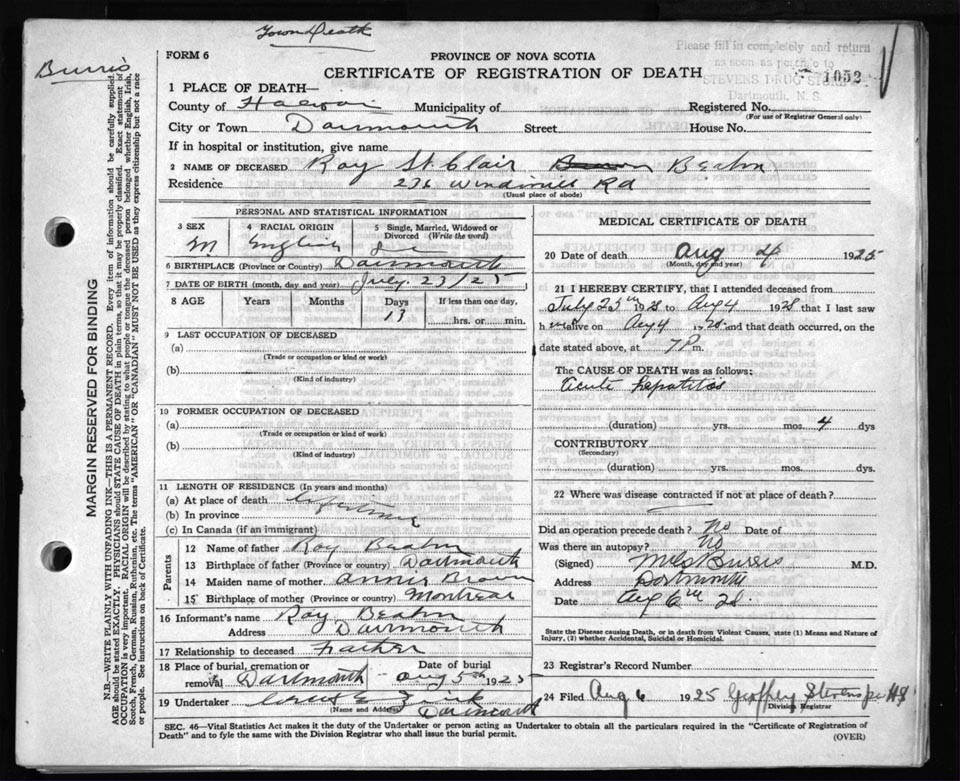 Town Death
Burris
FORM 6
PROVINCE OF NOVA SCOTIA
CERTIFICATE OF REGISTRATION OF DEATH
Please fill in completely and return
as soon as possible to
STEVENS DRUG STORE
Dartmouth, N. S.
1052
1 PLACE OF DEATH—
County of Halifax Municipality of
Registered No.
(For use of Registrar General only)
City or Town Dartmouth Street House No.
If in hospital or institution, give name
2 NAME OF DECEASED Roy St. Clair Brown Beahn
Residence 236 Windmill Rd
(Usual place of abode)
PERSONAL AND STATISTICAL INFORMATION
3 SEX M. 4 RACIAL ORIGIN English 5 Single, Married, Widowed or Divorced (Write the word)
6 BIRTHPLACE (Province or Country) Dartmouth
7 DATE OF BIRTH (month, day, and year) July 23/25
8 AGE Years Months Days 13 If less than one day, hrs. or min.
9 LAST OCCUPATION OF DECEASED
(a)
(Trade or occupation or kind or work)
(b)
(Kind of industry)
10 FORMER OCCUPATION OF DECEASED
(a)
(Trade or occupation or kind of work)
(b)
(Kind of industry)
11 LENGTH OF RESIDENCE (In years and months)
(a) At place of death Lifetime
(b) In province
(c) In Canada (if an immigrant)
Parents
12 Name of father Roy Beahn
13 Birthplace of father (Province or country) Dartmouth
14 Maiden name of mother Annie Brown
15 Birthplace of mother (Province or country) Montreal
16 Informant's name Roy Beahn
Address Dartmouth
17 Relationship to deceased Father
18 Place of burial, cremation or removal Dartmouth Date of burial Aug 5th 1925
19 Undertaker
(Name and Address) Dartmouth
MEDICAL CERTIFICATE OF DEATH
20 Date of death Aug 4 1925
(Month, day and year)
21 I HEREBY CERTIFY, that I attended deceased from
July 25th 1928 to Aug 4 1928 that I last saw
him alive on Aug 4 1928 and that death occurred, on the
date stated above, at 7 P m.
The CAUSE OF DEATH was as follows:
Acute hepatitis
(duration) yrs. mos. 4 dys
CONTRIBUTORY
(Secondary)
(duration) yrs. mos. dys.
22 Where was disease contracted if not at place of death?
Did an operation precede death? No Date of
Was there an autopsy? No
(Signed) Burris M.D.
Address Dartmouth
Date Aug 6th 28.
State the Disease causing Death, or in death from Violent Causes, state (1) Means and Nature of
Injury, (2) whether Accidental, Suicidal or Homicidal.
23 Registrar's Record Number
24 Filed Aug 6 1925 Geoffrey Stevens
Division Registrar
SEC. 46—Vital Statistics Act makes it the duty of the Undertaker or person acting as Undertaker to obtain all the particulars required in the "Certificate of Registration of
Death" and to fyle the same with the Division Registrar who shall issue the burial permit.
(OVER)
MARGIN RESERVED FOR BINDING
N.B.—WRITE PLAINLY WITH UNFADING INK—THIS IS A PERMANENT RECORD. Every item of information should be carefully supplied.
AGE should be stated EXACTLY. PHYSICIANS should STATE CAUSE OF DEATH in plain terms, so that it may be properly classified. Exact statement of
OCCUPATION is very important. RACIAL ORIGIN will be described by stating to what people or tongue the deceased person belonged whether English, Irish,
Scotch, French, German, Russian, Ruthenian, etc. The terms "AMERICAN" or "CANADIAN" MUST NOT BE USED as they express citizenship but not a race
or people. See instructions on back of Certificate.